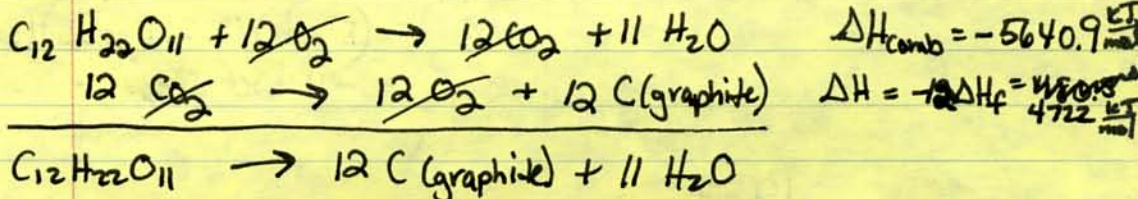 C₁₂ H₂₂O₁₁ + 12 O₂ → 12 CO₂ + 11 H₂O ΔHcomb = -5640.9 kJ/mol
12 CO₂ → 12 O₂ + 12 C (graphite) ΔH = -12ΔHf = 4722 kJ/mol
C₁₂H₂₂O₁₁ → 12 C (graphite) + 11 H₂O